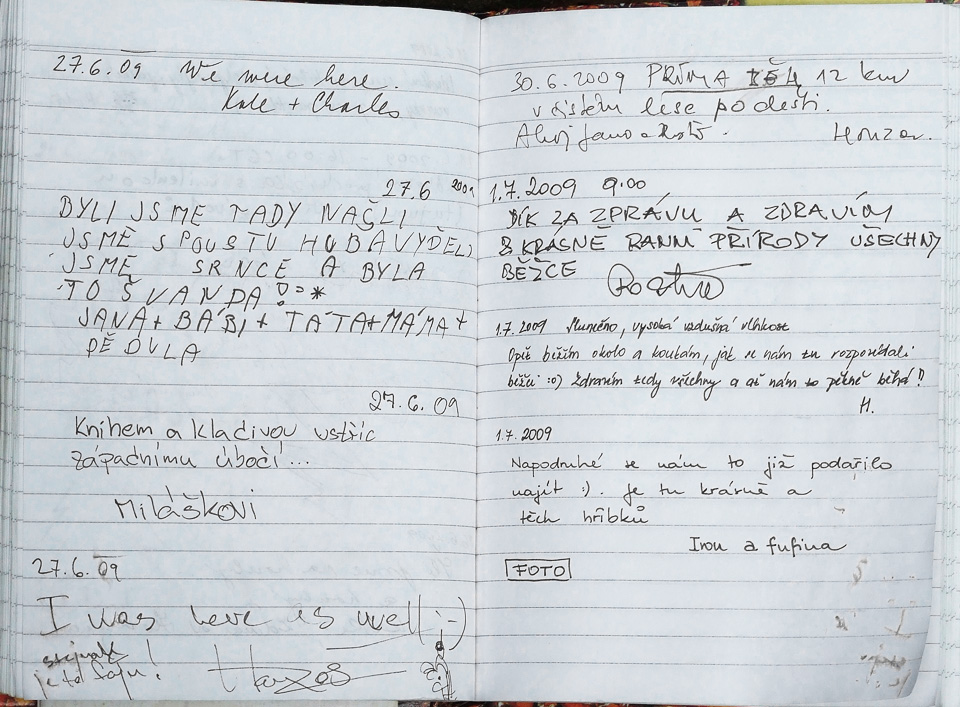 27.6.09 We were here.
Kate + Charles
27.6 2009
BYLI JSME TADY NAČLI
JSME SPOUSTU HUB A VYDĚLI
JSME SRNCE A BYLA
TO ŠVANDA!
JANA + BÁBI + TÁTA + MÁMA +
DĚDULA
27.6.09
Knihem a kladivou vstříc
západnímu úbočí...
Miláškovi
27.6.09
I was here is well :-)
stejnak
je to fajn!
30.6.2009 PRIMA BĚH 12 km
v čistém lese po dešti.
Ahoj Jano a Honzov.
1.7.2009 9:00
DÍK ZA ZPRÁVU A ZDRAVÍM
Z KRÁSNÉ RANNÍ PŘÍRODY VŠECHNY
BĚŽCE
1.7.2009 Slunečno, vysoká vzdušná vlhkost
Opět běžím okolo a koukám, jak se nám tu rozpovídali
běžci :o) Zdravím tedy všechny a ať nám to pěkně běhá!!
H.
1.7.2009
Napodruhé se nám to již podařilo
najít :). Je tu krásně a
těch hříbků
Ivou a fufina
FOTO